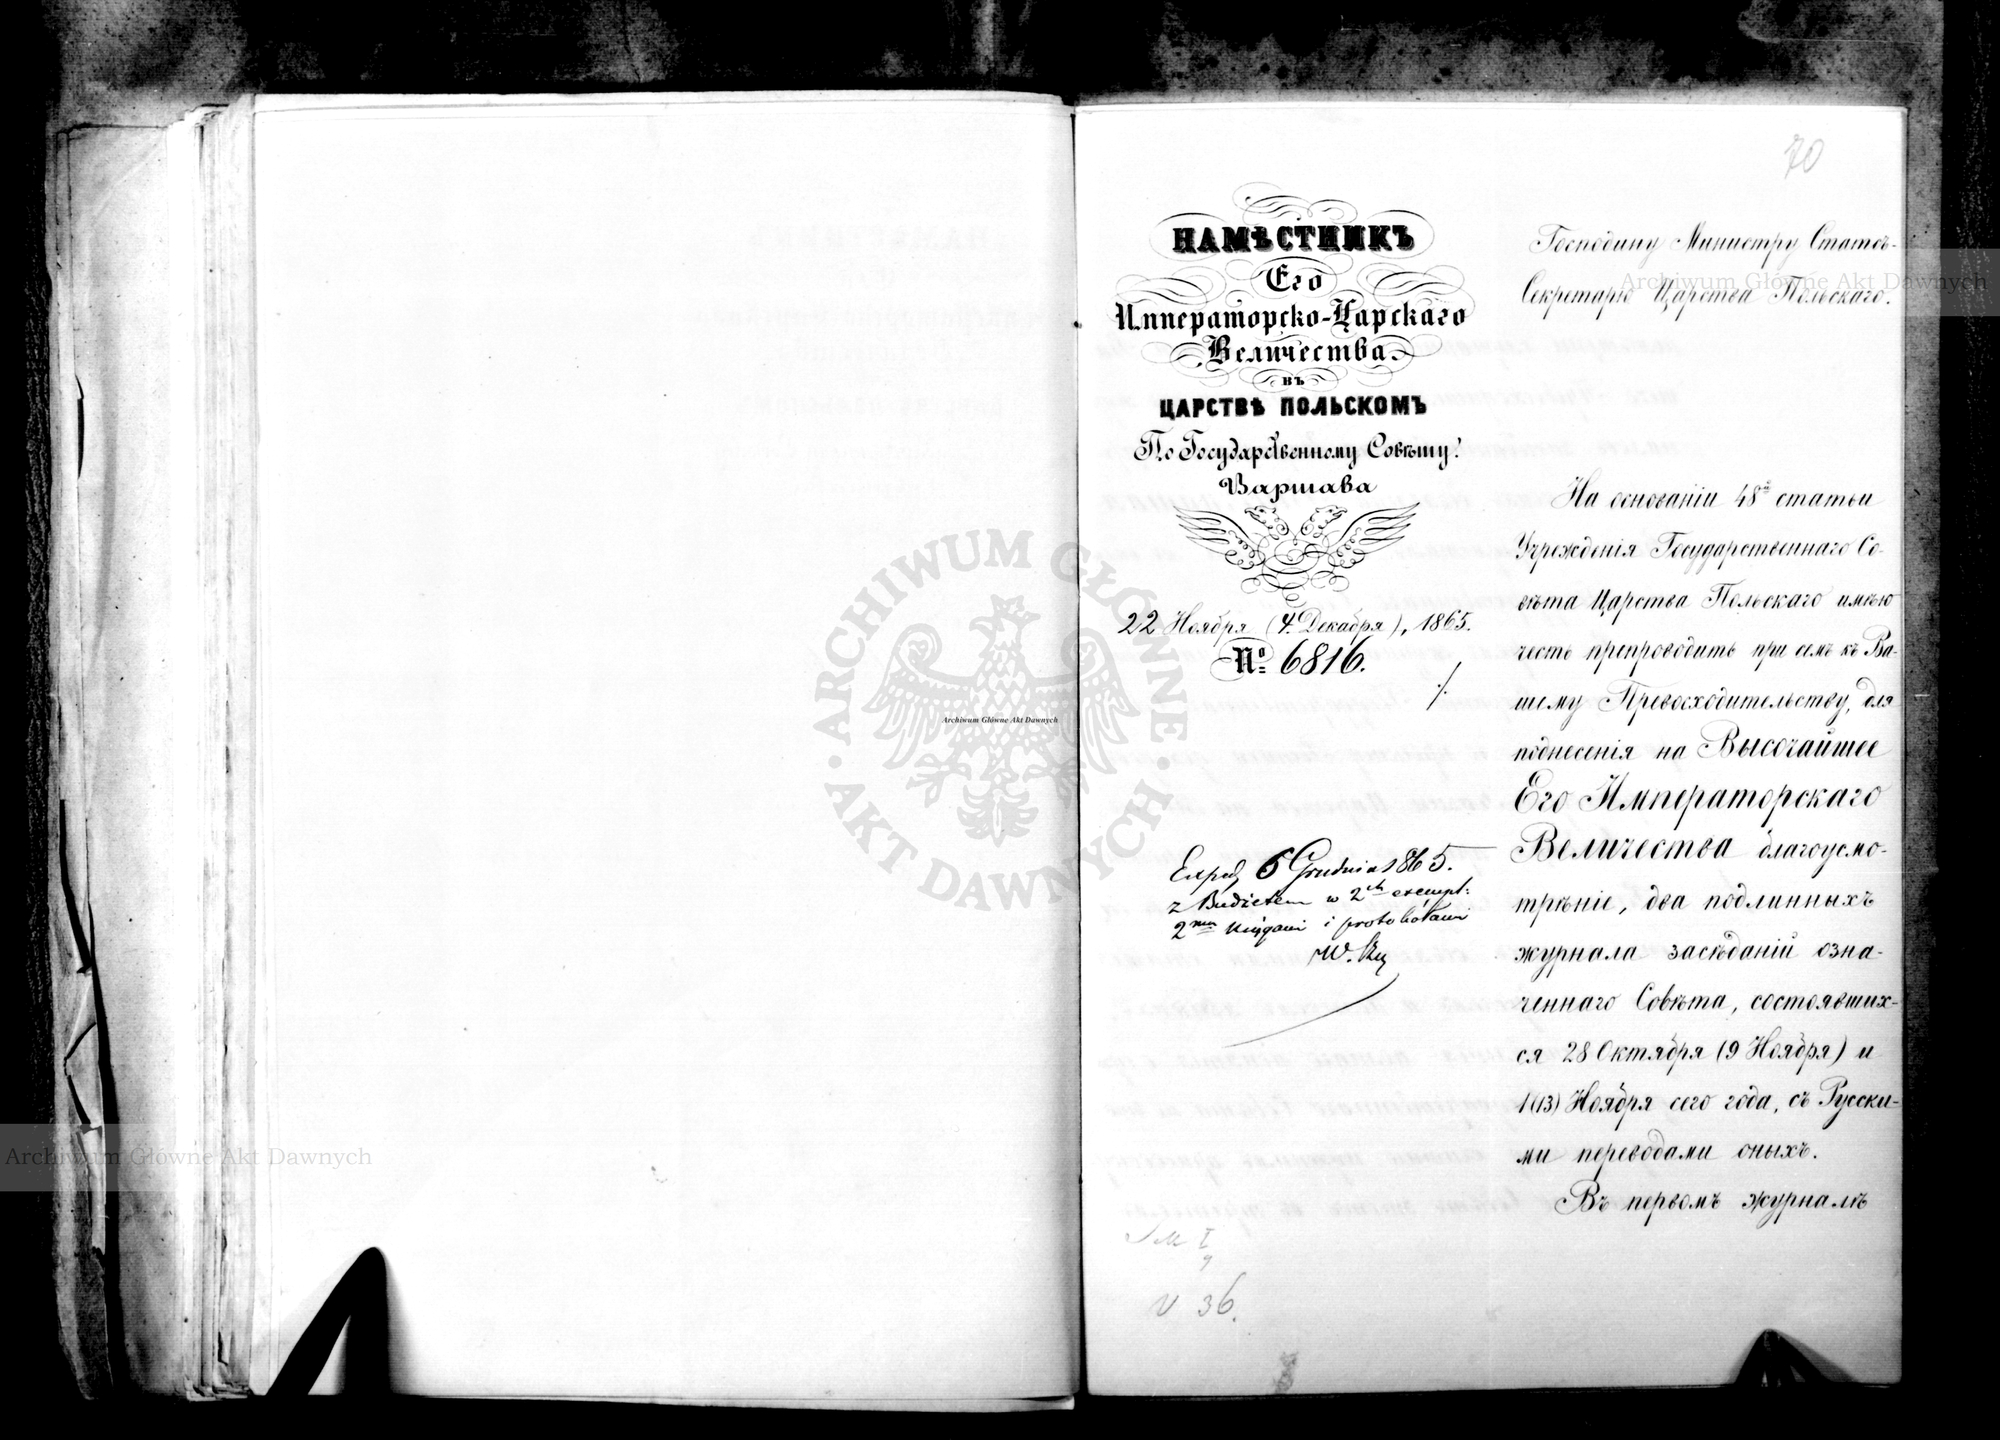 70
НАМѢСТНИКЪ
Его
Императорско-Царскаго
Величества
въ
ЦАРСТВѢ ПОЛЬСКОМЪ
По Государственному Совѣту.
Варшава
22 Ноября (4 Декабря), 1865.
№ 6816.
Exped 6 Grudnia 1865.
z Budżetem w 2ch exempl:
2ma księgami i protokołami
Господину Министру Статсъ-
Секретарю Царства Польскаго.
На основаніи 48й статьи
Учрежденія Государственнаго Со-
вѣта Царства Польскаго имѣю
честь препроводить при семъ къ Ва-
шему Превосходительству, для
поднесенія на Высочайшее
Его Императорскаго
Величества благоусмо-
трѣніе, два подлинныхъ
журнала засѣданій озна-
ченнаго Совѣта, состоявших-
ся 28 Октября (9 Ноября) и
1 (13) Ноября сего года, съ Русски-
ми переводами оныхъ.
Въ первомъ журналѣ
36.
Archiwum Główne Akt Dawnych
Archiwum Główne Akt Dawnych
Archiwum Główne Akt Dawnych
ARCHIWUM GŁÓWNE
AKT DAWNYCH